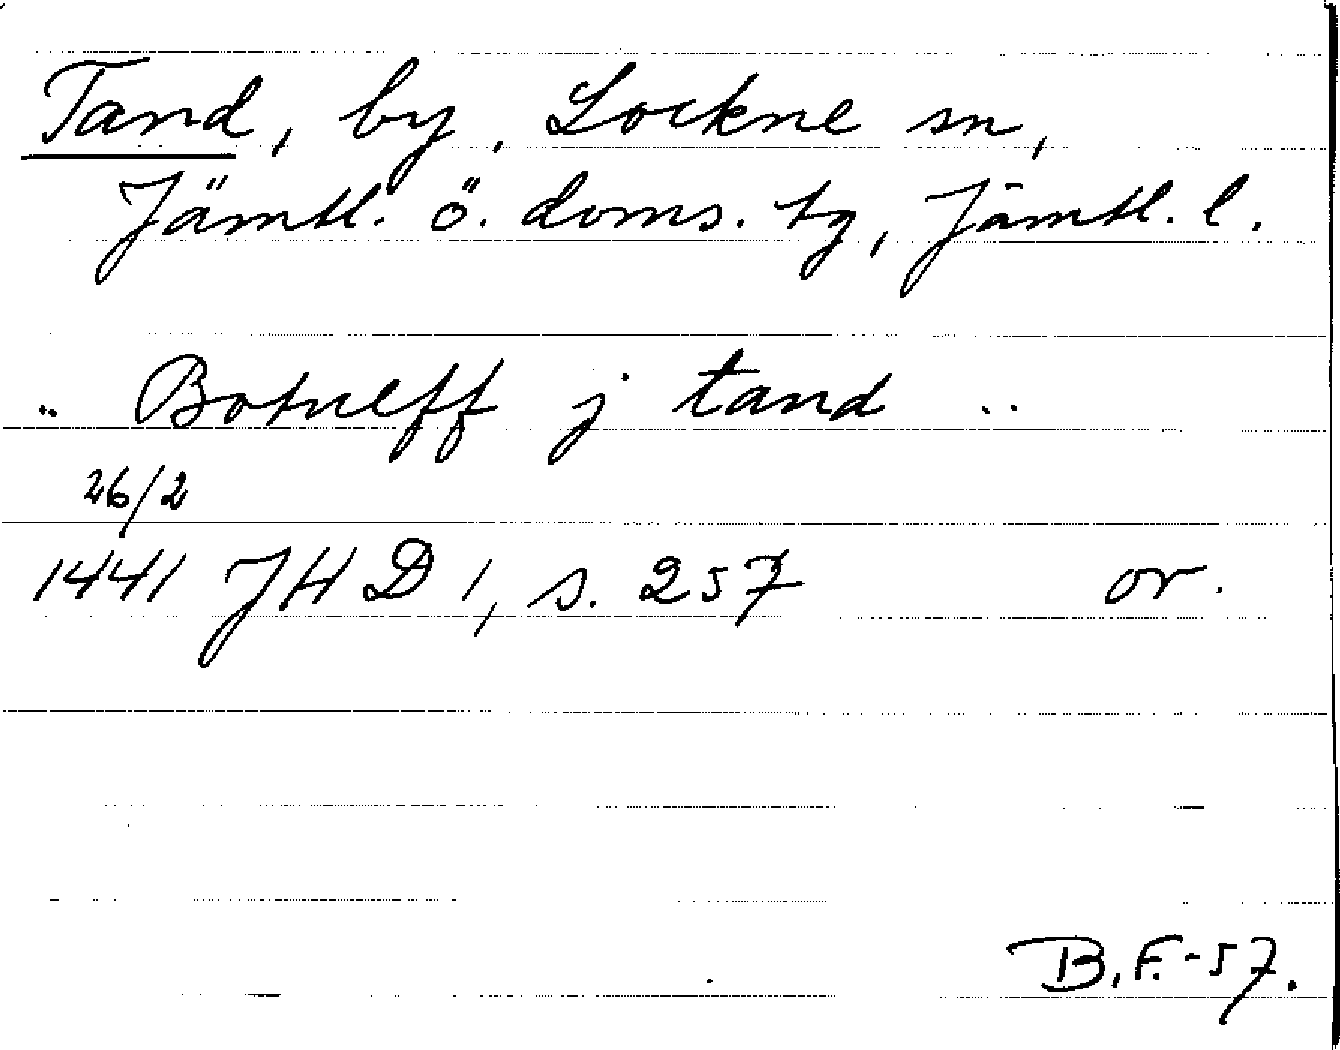 Tand, by, Lockne sn,
Jämtl. ö. doms. tg, Jämtl. l.
.. Botueff j tand ..
26/2
1441 JHD 1, s. 257 or.
B.F.-57.